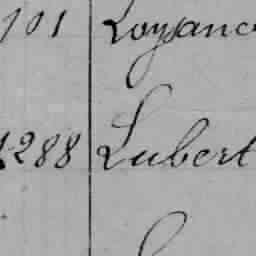 101 Loysanc
1288 Lubert